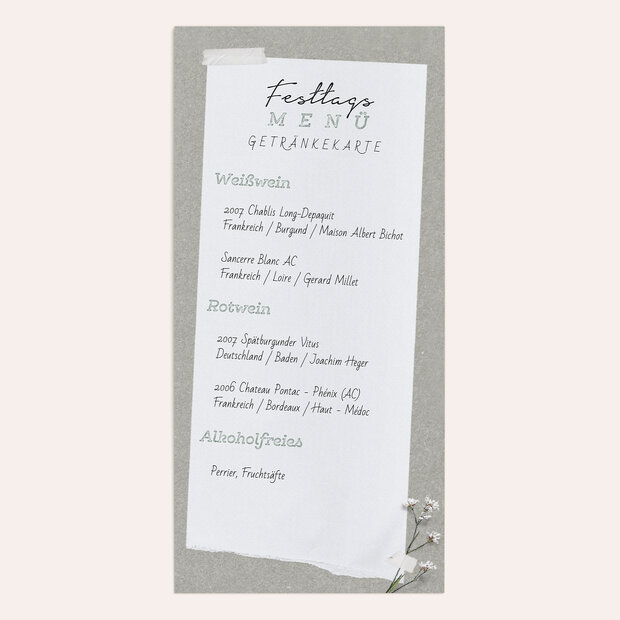 Festtags
MENÜ
GETRÄNKEKARTE
Weißwein
2007 Chablis Long-Depaquit
Frankreich / Burgund / Maison Albert Bichot
Sancerre Blanc AC
Frankreich / Loire / Gerard Millet
Rotwein
2007 Spätburgunder Vitus
Deutschland / Baden / Joachim Heger
2006 Chateau Pontac - Phénix (AC)
Frankreich / Bordeaux / Haut - Médoc
Alkoholfreies
Perrier, Fruchtsäfte